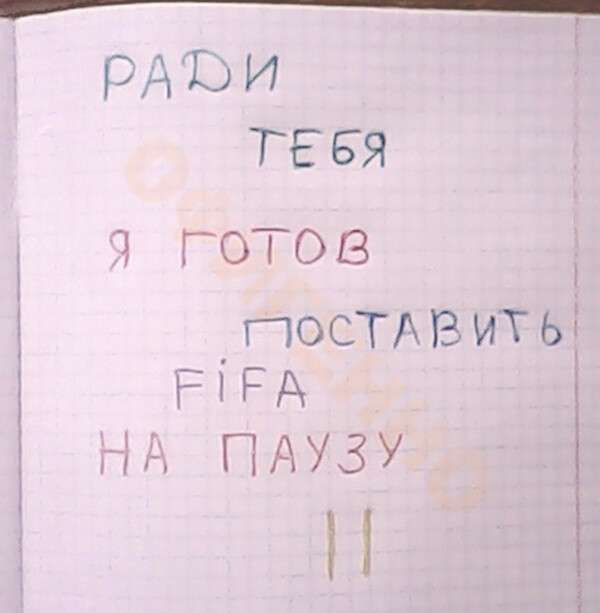 РАДИ
ТЕБЯ
Я ГОТОВ
ПОСТАВИТЬ
FiFA
НА ПАУЗУ